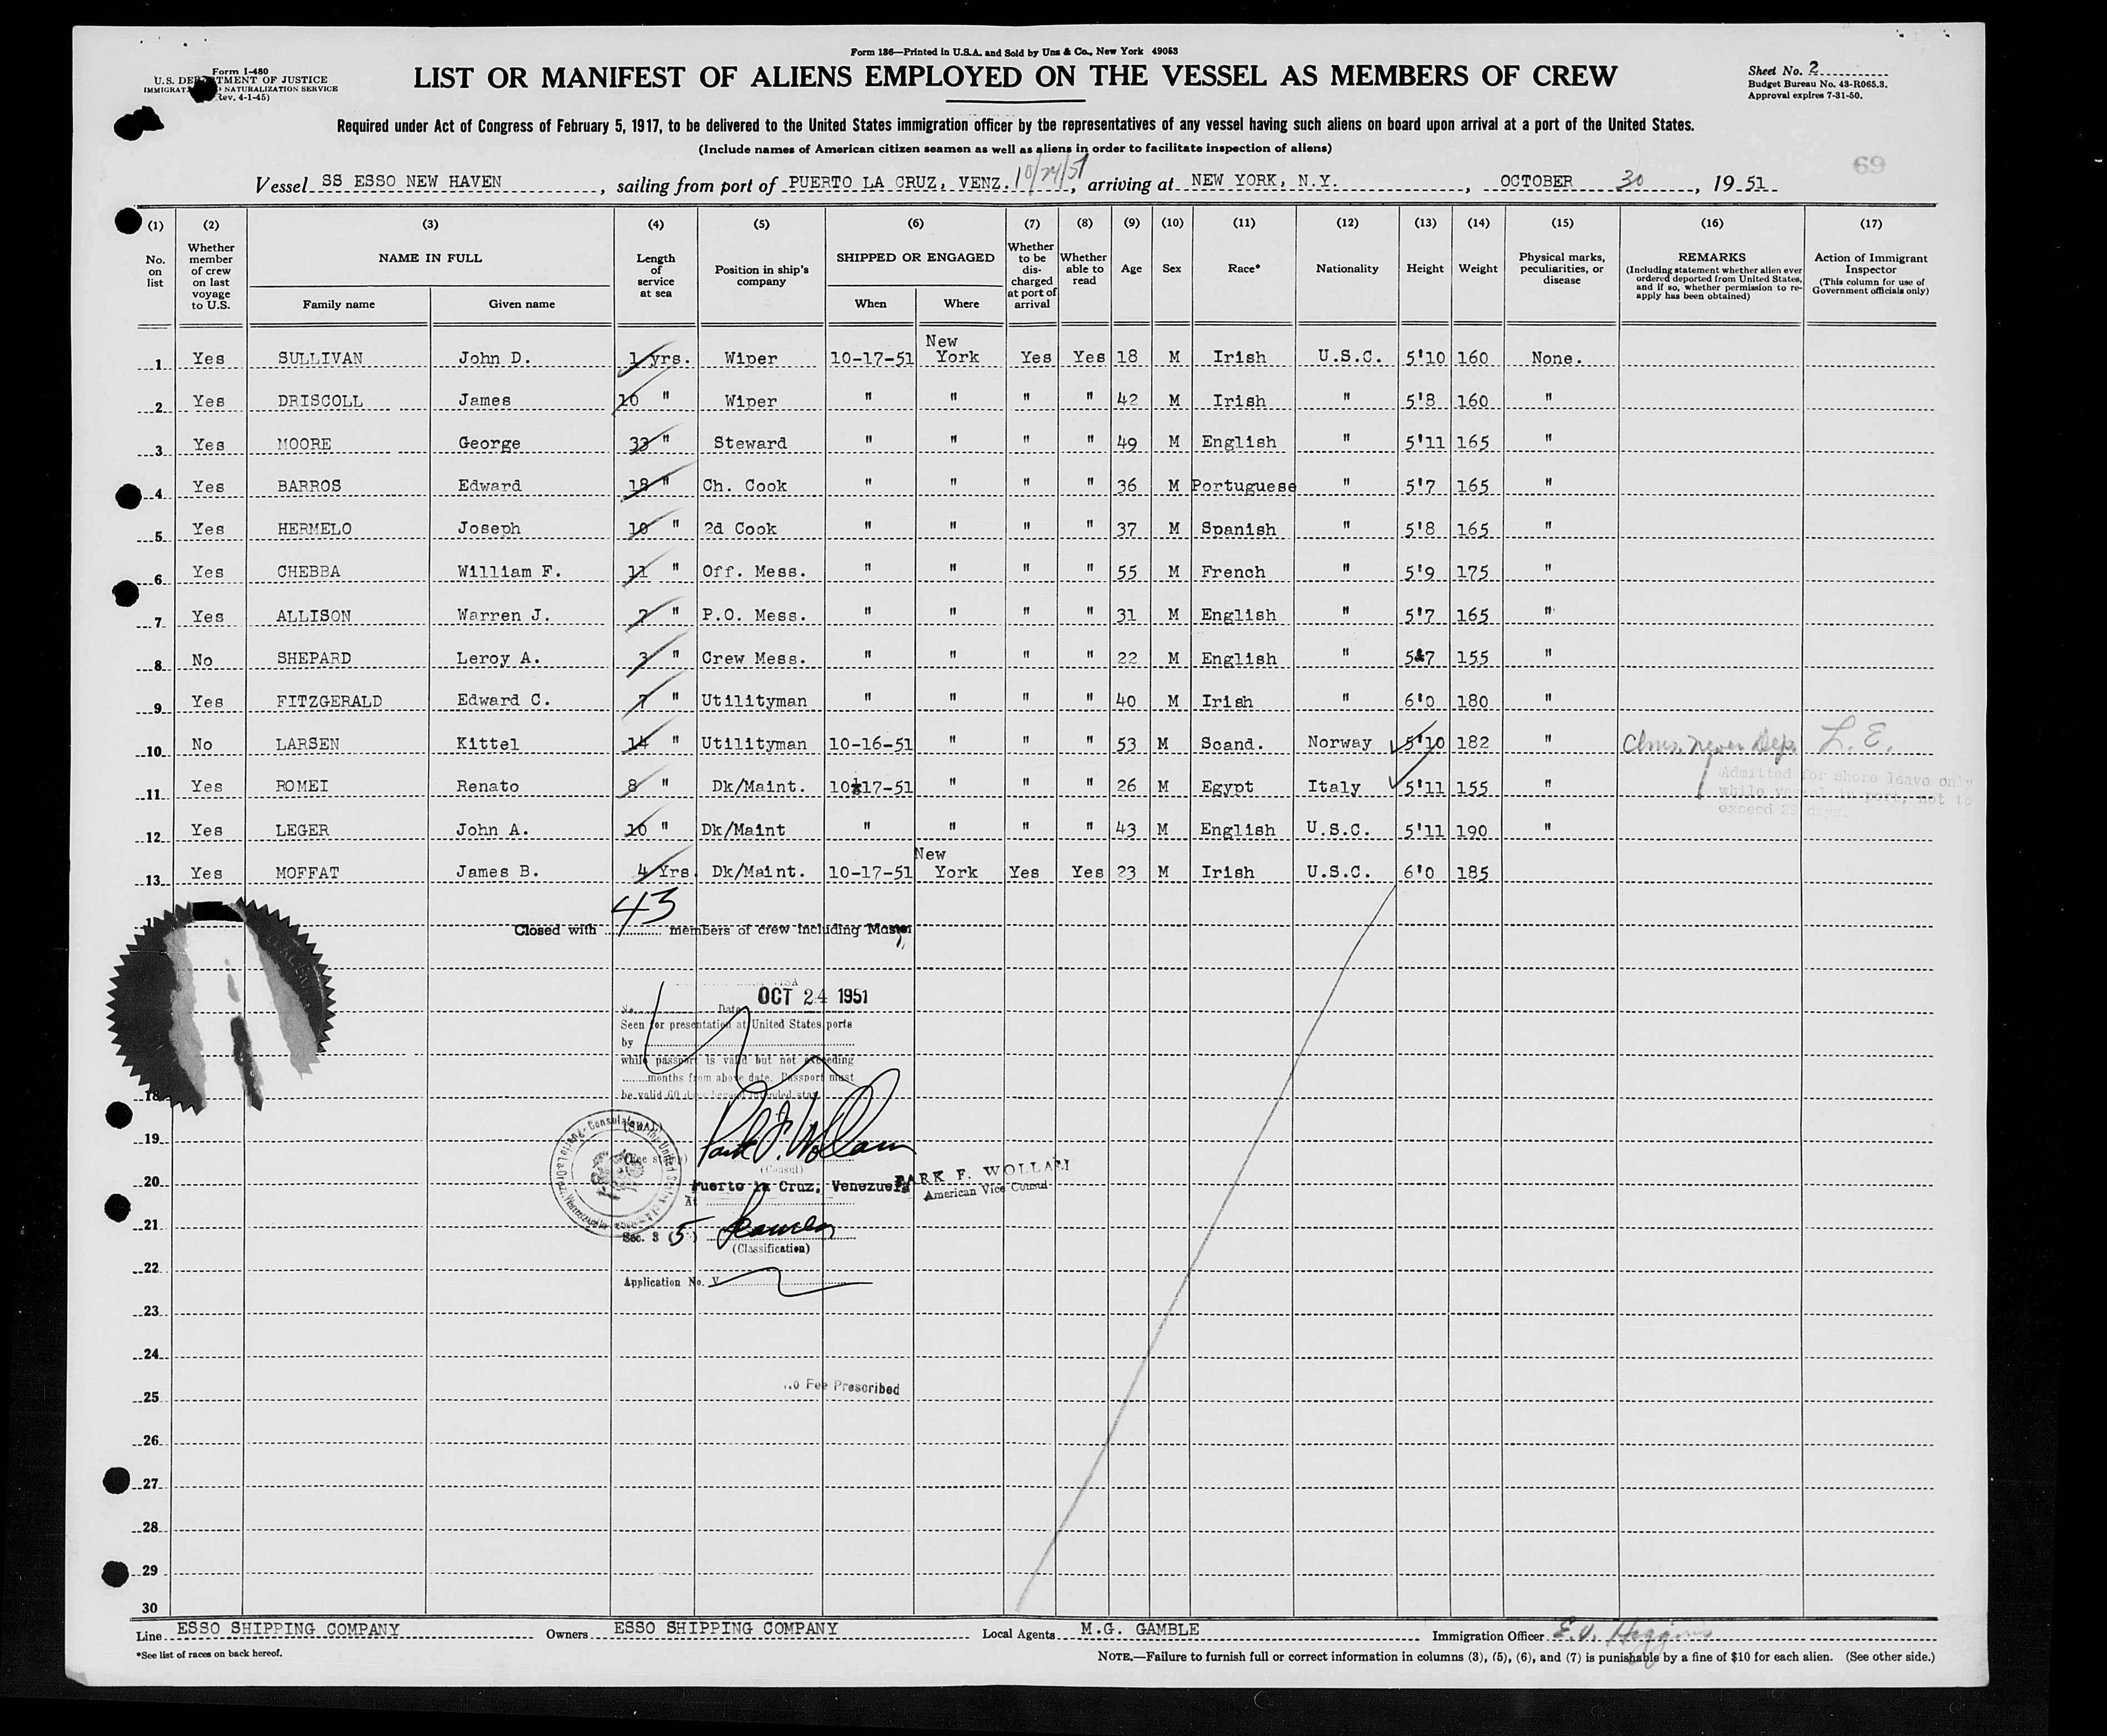 Form 136—Printed in U.S.A. and Sold by Unz & Co., New York 49053
Form I-480
U.S. DEPARTMENT OF JUSTICE
NATURALIZATION SERVICE
(Rev. 4-1-45)
LIST OR MANIFEST OF ALIENS EMPLOYED ON THE VESSEL AS MEMBERS OF CREW
Sheet No. 2
Budget Bureau No. 43-R065.3.
Approval expires 7-31-50.
Required under Act of Congress of February 5, 1917, to be delivered to the United States immigration officer by the representatives of any vessel having such aliens on board upon arrival at a port of the United States.
(Include names of American citizen seamen as well as aliens in order to facilitate inspection of aliens)
69
Vessel SS ESSO NEW HAVEN, sailing from port of PUERTO LA CRUZ, VENZ. 10/24/51, arriving at NEW YORK, N.Y., OCTOBER 30, 1951
(1) (2) (3) (4) (5) (6) (7) (8) (9) (10) (11) (12) (13) (14) (15) (16) (17)
No. on list
Whether member of crew on last voyage to U.S.
NAME IN FULL
Family name
Given name
Length of service at sea
Position in ship's company
SHIPPED OR ENGAGED
When
Where
Whether to be discharged at port of arrival
Whether able to read
Age
Sex
Race*
Nationality
Height
Weight
Physical marks, peculiarities, or disease
REMARKS
(Including statement whether alien ever ordered deported from United States, and if so, whether permission to re-apply has been obtained)
Action of Immigrant Inspector
(This column for use of Government officials only)
1 Yes SULLIVAN John D. 1 yrs. Wiper 10-17-51 New York Yes Yes 18 M Irish U.S.C. 5'10 160 None.
2 Yes DRISCOLL James 10 " Wiper " " " " 42 M Irish " 5'8 160 "
3 Yes MOORE George 33 " Steward " " " " 49 M English " 5'11 165 "
4 Yes BARROS Edward 18 " Ch. Cook " " " " 36 M Portuguese " 5'7 165 "
5 Yes HERMELO Joseph 10 " 2d Cook " " " " 37 M Spanish " 5'8 165 "
6 Yes CHEBBA William F. 11 " Off. Mess. " " " " 55 M French " 5'9 175 "
7 Yes ALLISON Warren J. 7 " P.O. Mess. " " " " 31 M English " 5'7 165 "
8 No SHEPARD Leroy A. 3 " Crew Mess. " " " " 22 M English " 5'7 155 "
9 Yes FITZGERALD Edward C. 7 " Utilityman " " " " 40 M Irish " 6'0 180 "
10 No LARSEN Kittel 14 " Utilityman 10-16-51 " " " 53 M Scand. Norway 5'10 182 " never Dep. L. E.
11 Yes ROMEI Renato 8 " Dk/Maint. 10-17-51 " " " 26 M Egypt Italy 5'11 155 "
Admitted for shore leave only
while vessel in port, not to
exceed 29 days.
12 Yes LEGER John A. 10 " Dk/Maint " " " " 43 M English U.S.C. 5'11 190 "
13 Yes MOFFAT James B. 4 Yrs. Dk/Maint. 10-17-51 New York Yes Yes 23 M Irish U.S.C. 6'0 185
Closed with 43 members of crew including Master
OCT 24 1951
No. Date
Seen for presentation at United States ports
by
while passport is valid but not exceeding
months from above date. Passport must
be valid 60 days beyond intended stay
18
(SEAL)
Park F. Wollam
19
(Fee stamp)
(Consul)
PARK F. WOLLAM
American Vice Consul
20
Puerto la Cruz, Venezuela
At
21
Sec. 3 (5) Seamen
(Classification)
22
Application No. V
23
24
25
No Fee Prescribed
26
27
28
29
30
Line ESSO SHIPPING COMPANY Owners ESSO SHIPPING COMPANY Local Agents M.G. GAMBLE Immigration Officer E. J. Higgins
*See list of races on back hereof.
NOTE.—Failure to furnish full or correct information in columns (3), (5), (6), and (7) is punishable by a fine of $10 for each alien. (See other side.)